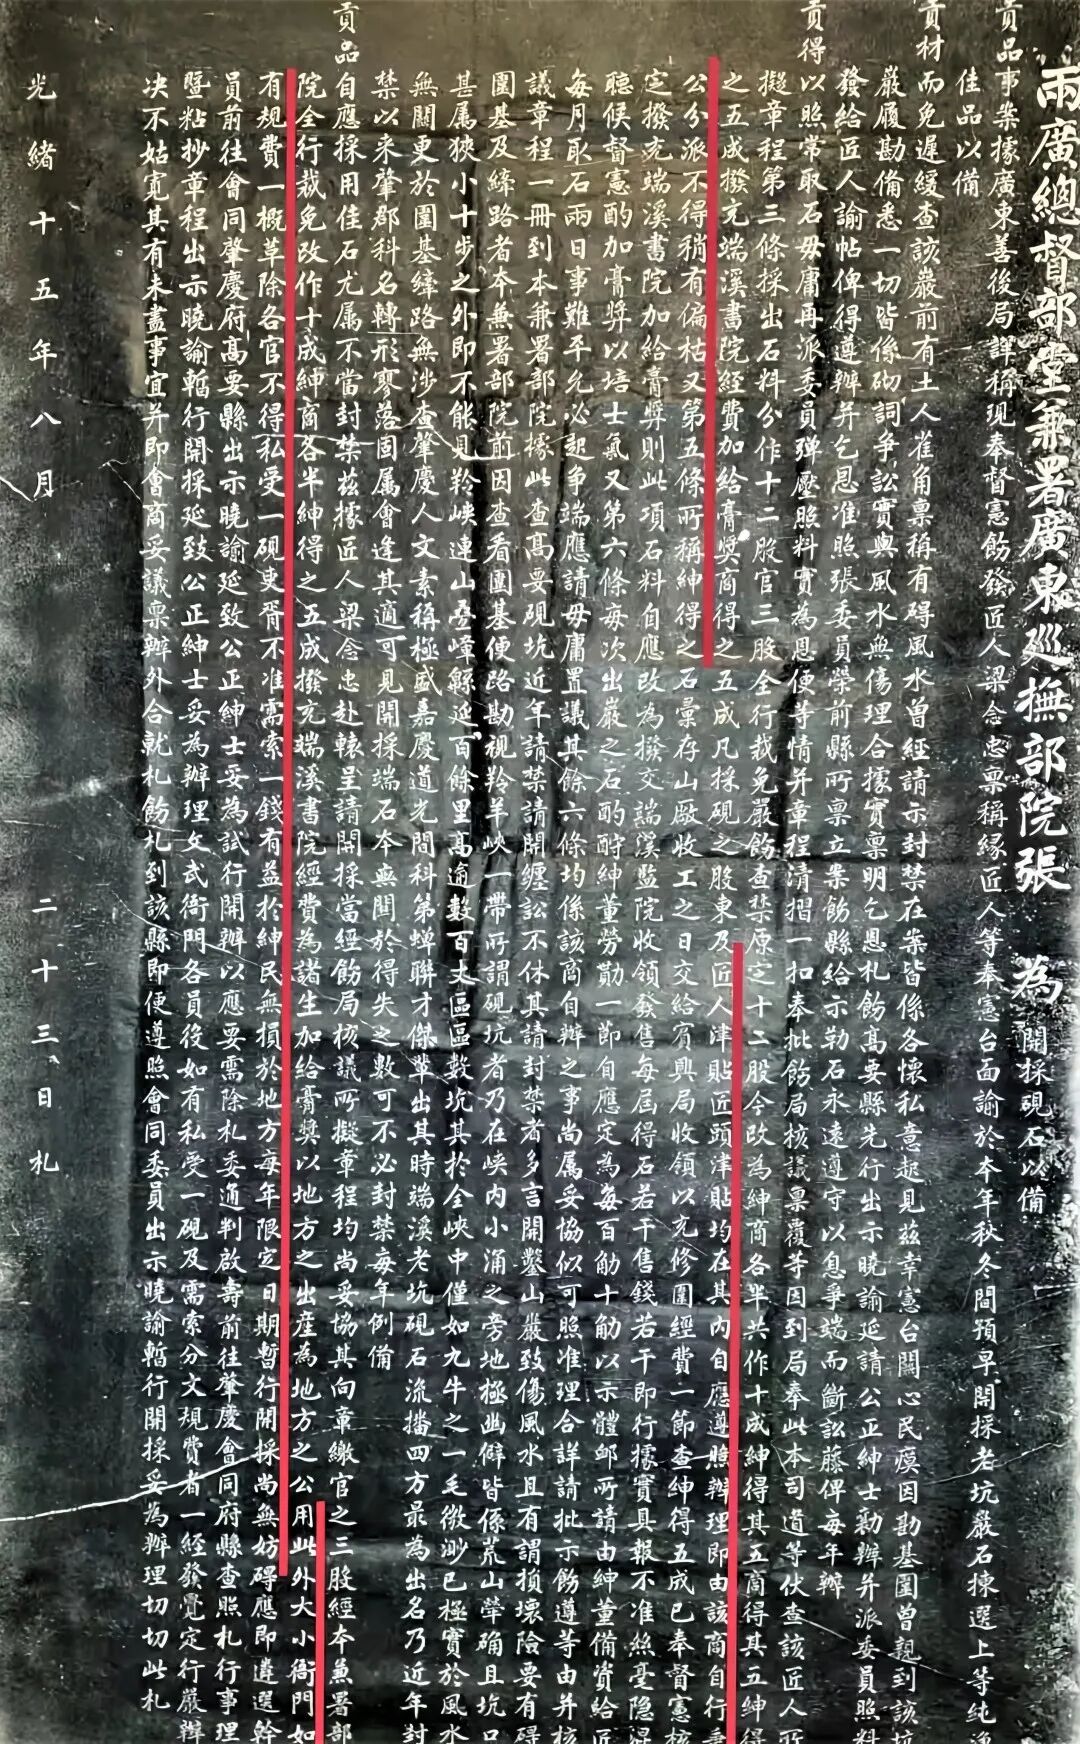 兩廣總督部堂兼署廣東巡撫部院張　為　開採硯石以備
貢品事案據廣東善後局詳稱現奉督憲飭發匠人梁念忠稟稱緣匠人等奉憲台面諭於本年秋冬間預早開採老坑嚴石揀選上等純
佳品以備
貢材而免遲緩查該巖前有土人雀角稟稱有碍風水曾經請示封禁在案皆係各懷私意起見茲幸憲台關心民瘼因勘基圍曾親到該坑
嚴履勘備悉一切皆係砌詞爭訟實與風水無傷理合據實稟明乞恩札飭高要縣先行出示曉諭延請公正紳士勷辦并派委員照料
發給匠人諭帖俾得遵辦并乞恩准照張委員榮前縣所稟立案飭縣給示勒石永遠遵守以息爭端而斷訟藤俾每年辦
貢得以照常取石毋庸再派委員彈壓照料實為恩便等情并章程清摺一扣奉批飭局核議稟覆等因到局奉此本司道等伏查該匠人所
擬章程第三條採出石料分作十二股官三股全行裁免嚴飭查禁原定十二股今改為紳商各半共作十成紳得其五商得其五紳得
之五成撥充端溪書院經費加給膏獎商得之五成凡採硯之股東及匠人津貼匠頭津貼均在其內自應遵照辦理即由該商自行秉
公分派不得稍有偏枯又第五條所稱紳得之石彙存山廠收工之日交給賓興局收領以充修圍經費一節查紳得五成已奉督憲核
定撥充端溪書院加給膏獎則此項石料自應改為撥交端溪監院收領發售每屆得石若干售錢若干即行據實具報不准絲毫隱混
聽候督憲酌加膏獎以培士氣又第六條每次出巖之石酌酹紳董勞勩一節自應定為每百觔十觔以示體卹所請由紳董備資給匠
每月取石兩日事難平允必起爭端應請毋庸置議其餘六條均係該商自辦之事尚屬妥協似可照准理合詳請批示飭遵等由并核
議章程一冊到本兼署部院據此查高要硯坑近年請禁請開纏訟不休其請封禁者多言開鑿山巖致傷風水且有謂損壞險要有碍
圍基及縴路者本兼署部院前因查看圍基便路勘視羚羊峽一帶所謂硯坑者乃在峽內小涌之旁地極幽僻皆係荒山犖确且坑口
甚屬狹小十步之外即不能見羚峽連山疊嶂緜延百餘里高逾數百丈區區數坑其於全峽中僅如九牛之一毛微渺已極實於風水
無關更於圍基縴路無涉查肇慶人文素稱極盛嘉慶道光間科第蟬聯才傑輩出其時端溪老坑硯石流播四方最為出名乃近年封
禁以來肇郡科名轉形寥落固屬會逢其適可見開採端石本無關於得失之數可不必封禁每年例備
貢品自應採用佳石尤屬不當封禁茲據匠人梁念忠赴轅呈請開採當經飭局核議所擬章程均尚妥協其向章繳官之三股經本兼署部
院全行裁免改作十成紳商各半紳得之五成撥充端溪書院經費為諸生加給膏獎以地方之出產為地方之公用此外大小衙門如
有規費一概革除各官不得私受一硯吏胥不准需索一錢有益於紳民無損於地方每年限定日期暫行開採尚無妨碍應即遴選幹
員前往會同肇慶府高要縣出示曉諭延致公正紳士妥為試行開辦以應要需除札委通判啟壽前往肇慶會同府縣查照札行事理
曁粘抄章程出示曉諭暫行開採延致公正紳士妥為辦理文武衙門各員役如有私受一硯及需索分文規費者一經發覺定行嚴辦
決不姑寬其有未盡事宜并即會商妥議稟辦外合就札飭札到該縣即便遵照會同委員出示曉諭暫行開採妥為辦理切切此札
光緒十五年八月　二十三日札